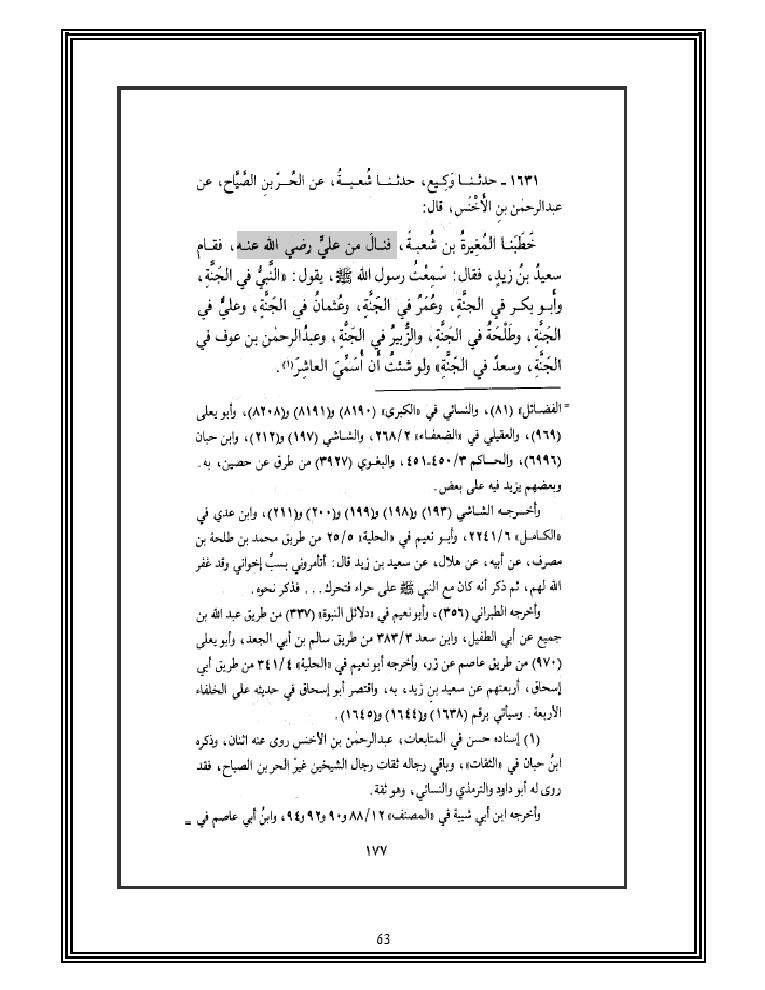 ١٦٣١ ـ حدثنـا وَكِيع، حدثنـا شُعبـةُ، عن الحُـرّ بنِ الصَّيَّاح، عن
عبدالرحمٰن بنِ الأَخْنَس، قال:
خَطَبَنـا المُغِيرةُ بن شُعبـةَ، فنـالَ من عليٍّ رضي الله عنـه، فقـام
سعيدُ بنُ زيدٍ، فقال: سَمِعْتُ رسول الله ﷺ، يقول: «النَّبيُّ في الجَنَّةِ،
وأَبـو بكر في الجنَّةِ، وعُمَرُ في الجَنَّةِ، وعُثمانُ في الجَنَّةِ، وعليٌّ في
الجَنَّةِ، وطَلْحَةُ في الجَنَّةِ، والزُّبيرُ في الجَنَّةِ، وعبدُالرحمٰن بن عوف في
الجَنَّةِ، وسعدٌ في الجَنَّةِ» ولو شئتُ أَن أُسَمِّيَ العاشِرَ(١).
= الفضـائل» (٨١)، والنسائي في «الكبرى» (٨١٩٠) و(٨١٩١) و(٨٢٠٨)، وأبو يعلى
(٩٦٩)، والعقيلي في «الضعفاء» ٢٦٨/٢، والشاشي (١٩٧) و(٢١٢)، وابن حبان
(٦٩٩٦)، والحـاكم ٤٥٠/٣ـ٤٥١، والبغوي (٣٩٢٧) من طرق عن حصين، به.
وبعضهم يزيد فيه على بعض.
وأخـرجـه الشـاشي (١٩٣) و(١٩٨) و(١٩٩) و(٢٠٠) و(٢١١)، وابن عدي في
«الكامـل» ٢٢٤١/٦، وأبـو نعيم في «الحلية» ٢٥/٥ من طريق محمد بن طلحة بن
مصرف، عن أبيه، عن هلال، عن سعيد بن زيد قال: أتأمروني بسبِّ إخواني وقد غفر
الله لهم، ثم ذكر أنه كان مع النبي ﷺ على حراء فتحرك... فذكر نحوه.
وأخرجه الطبراني (٣٥٦)، وأبو نعيم في «دلائل النبوة» (٣٣٧) من طريق عبد الله بن
جميع عن أبي الطفيل، وابن سعد ٣٨٣/٣ من طريق سالم بن أبي الجعد، وأبو يعلى
(٩٧٠) من طريق عاصم عن زر، وأخرجه أبو نعيم في «الحلية» ٣٤١/٤ من طريق أبي
إسحاق، أربعتهم عن سعيد بنِ زيد، به، واقتصر أبو إسحاق في حديثه على الخلفاء
الأربعة. وسيأتي برقم (١٦٣٨) و(١٦٤٤) و(١٦٤٥).
(١) إسناده حسن في المتابعات، عبدالرحمٰن بن الأخنس روى عنه اثنان، وذكره
ابنُ حبان في «الثقات»، وباقي رجاله ثقات رجال الشيخين غيرَ الحر بن الصياح، فقد
روى له أبو داود والترمذي والنسائي، وهو ثقة.
وأخرجه ابن أبي شيبة في «المصنف» ٨٨/١٢ و٩٠ و٩٢ و٩٤، وابنُ أبي عاصم في =
١٧٧
63